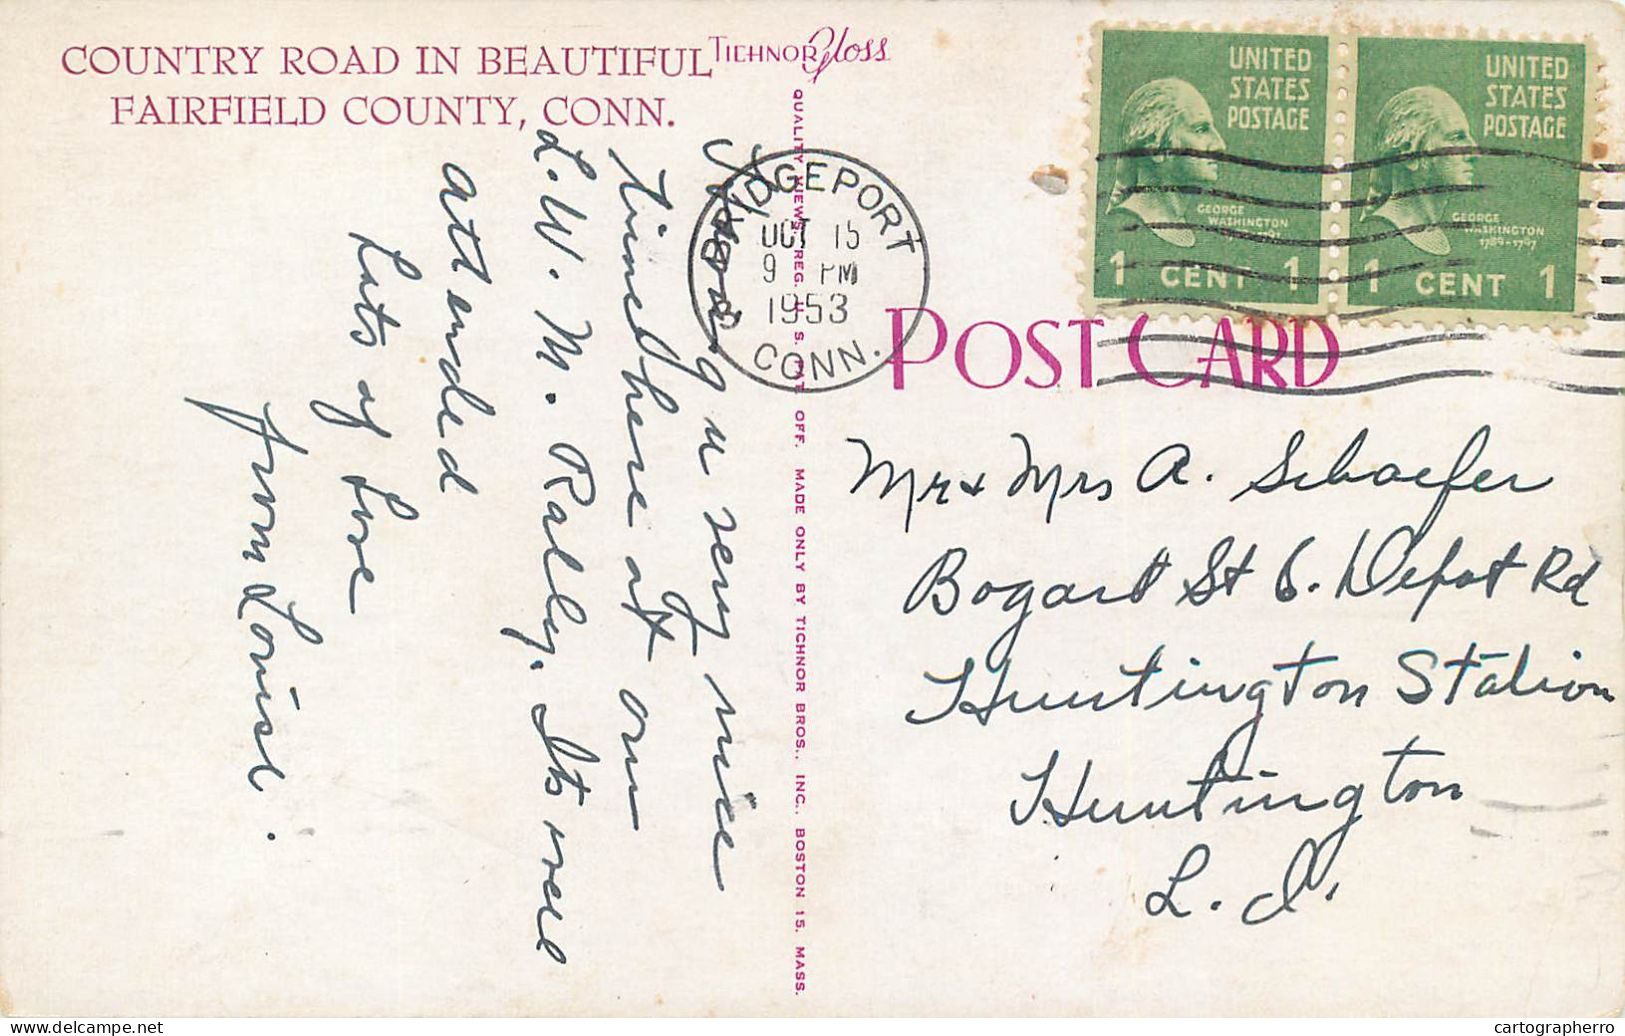 COUNTRY ROAD IN BEAUTIFUL
FAIRFIELD COUNTY, CONN.
TICHNOR Gloss
QUALITY VIEWS. REG. U. S. PAT. OFF. MADE ONLY BY TICHNOR BROS., INC., BOSTON 15, MASS.
BRIDGEPORT
OCT 15
9 PM
1953
CONN.
UNITED
STATES
POSTAGE
GEORGE
WASHINGTON
1 CENT 1
UNITED
STATES
POSTAGE
GEORGE
WASHINGTON
1789-1797
1 CENT 1
POST CARD
Having a very nice
time here at our
L. W. M. Rally. Its well
attended
Lots of Love
from Louise.
Mr & Mrs A. Schaefer
Bogart St & Depot Rd
Huntington Station
Huntington
L. I.
cartographerro